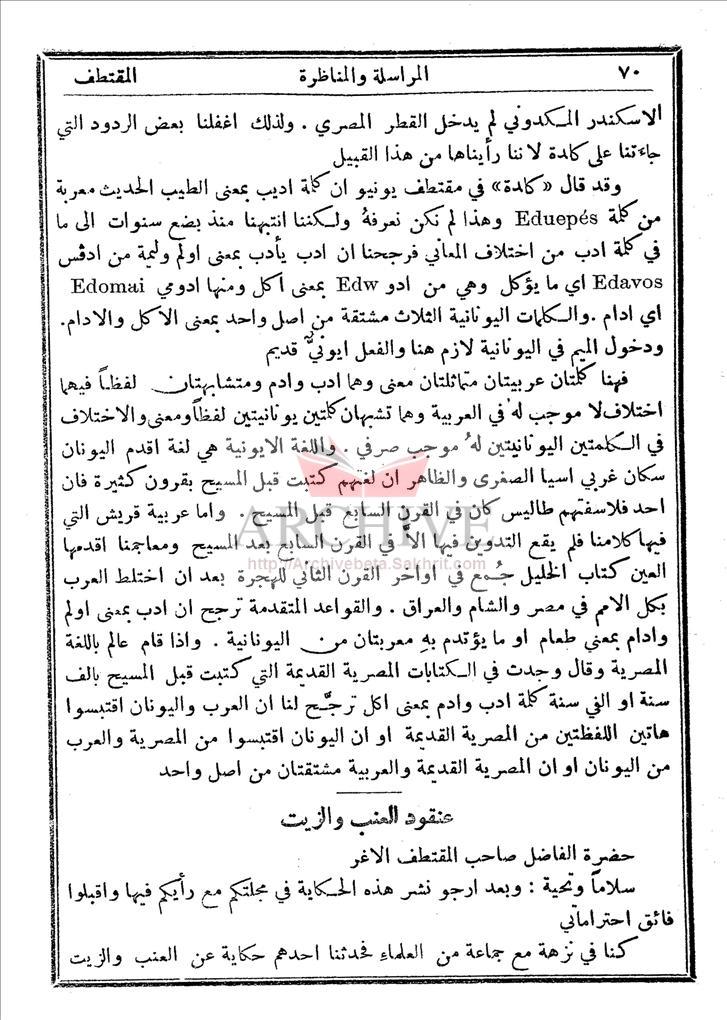 ٧٠ المراسلة والمناظرة المقتطف
الاسكندر المكدوني لم يدخل القطر المصري . ولذلك اغفلنا بعض الردود التي
جاءتنا على كادة لاننا رأيناها من هذا القبيل
وقد قال «كادة» في مقتطف يونيو ان كلمة اديب بمعنى الطيب الحديث معربة
من كلمة Eduepés وهذا لم نكن نعرفهُ ولكننا انتبهنا منذ بضع سنوات الى ما
في كلمة ادب من اختلاف المعاني فرجحنا ان ادب يأدب بمعنى اولم وليمة من ادڤس
Edavos اي ما يؤكل وهي من ادو Edw بمعنى اكل ومنها ادومي Edomai
اي ادام . والكلمات اليونانية الثلاث مشتقة من اصل واحد بمعنى الأكل والادام.
ودخول الميم في اليونانية لازم هنا والفعل ايونيٌّ قديم
فهنا كلمتان عربيتان متماثلتان معنى وهما ادب وادم ومتشابهتان لفظاً فيهما
اختلاف لا موجب لهُ في العربية وهما تشبهان كلمتين يونانيتين لفظاً ومعنى والاختلاف
في الكلمتين اليونانيتين لهُ موجب صرفي . واللغة الايونية هي لغة اقدم اليونان
سكان غربي اسيا الصغرى والظاهر ان لغتهم كتبت قبل المسيح بقرون كثيرة فان
احد فلاسفتهم طاليس كان في القرن السابع قبل المسيح . واما عربية قريش التي
فيها كلامنا فلم يقع التدوين فيها الاَّ في القرن السابع بعد المسيح ومعاجمنا اقدمها
العين كتاب الخليل جُمع في اواخر القرن الثاني للهجرة بعد ان اختلط العرب
بكل الامم في مصر والشام والعراق . والقواعد المتقدمة ترجح ان ادب بمعنى اولم
وادام بمعنى طعام او ما يؤتدم بهِ معربتان من اليونانية . واذا قام عالم باللغة
المصرية وقال وجدت في الكتابات المصرية القديمة التي كتبت قبل المسيح بالف
سنة او الفي سنة كلمة ادب وادم بمعنى اكل ترجَّح لنا ان العرب واليونان اقتبسوا
هاتين اللفظتين من المصرية القديمة او ان اليونان اقتبسوا من المصرية والعرب
من اليونان او ان المصرية القديمة والعربية مشتقتان من اصل واحد
عنقود العنب والزيت
حضرة الفاضل صاحب المقتطف الاغر
سلاماً وتحية : وبعد ارجو نشر هذه الحكاية في مجلتكم مع رأيكم فيها واقبلوا
فائق احتراماتي
كنا في نزهة مع جماعة من العلماءِ فحدثنا احدهم حكاية عن العنب والزيت
ARCHIVE
http://Archivebeta.Sakhrit.com